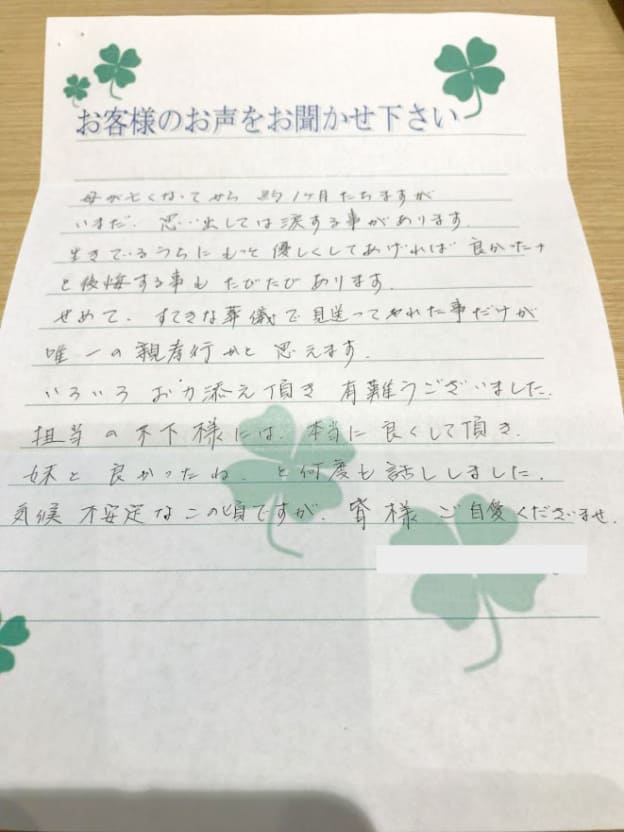 お客様のお声をお聞かせ下さい
母が亡くなってから 約1ヶ月たちますが
いまだ、思い出しては涙する事があります。
生きているうちにもっと優しくしてあげれば 良かったナ
と後悔する事も たびたびあります。
せめて、すてきな葬儀で見送ってやれた事だけが
唯一の親孝行かと思えます。
いろいろ お力添え頂き 有難うございました。
担当の木下様には、本当に良くして頂き、
妹と 良かったね、と何度も話ししました。
気候 不安定なこの頃ですが、皆様 ご自愛くださいませ。